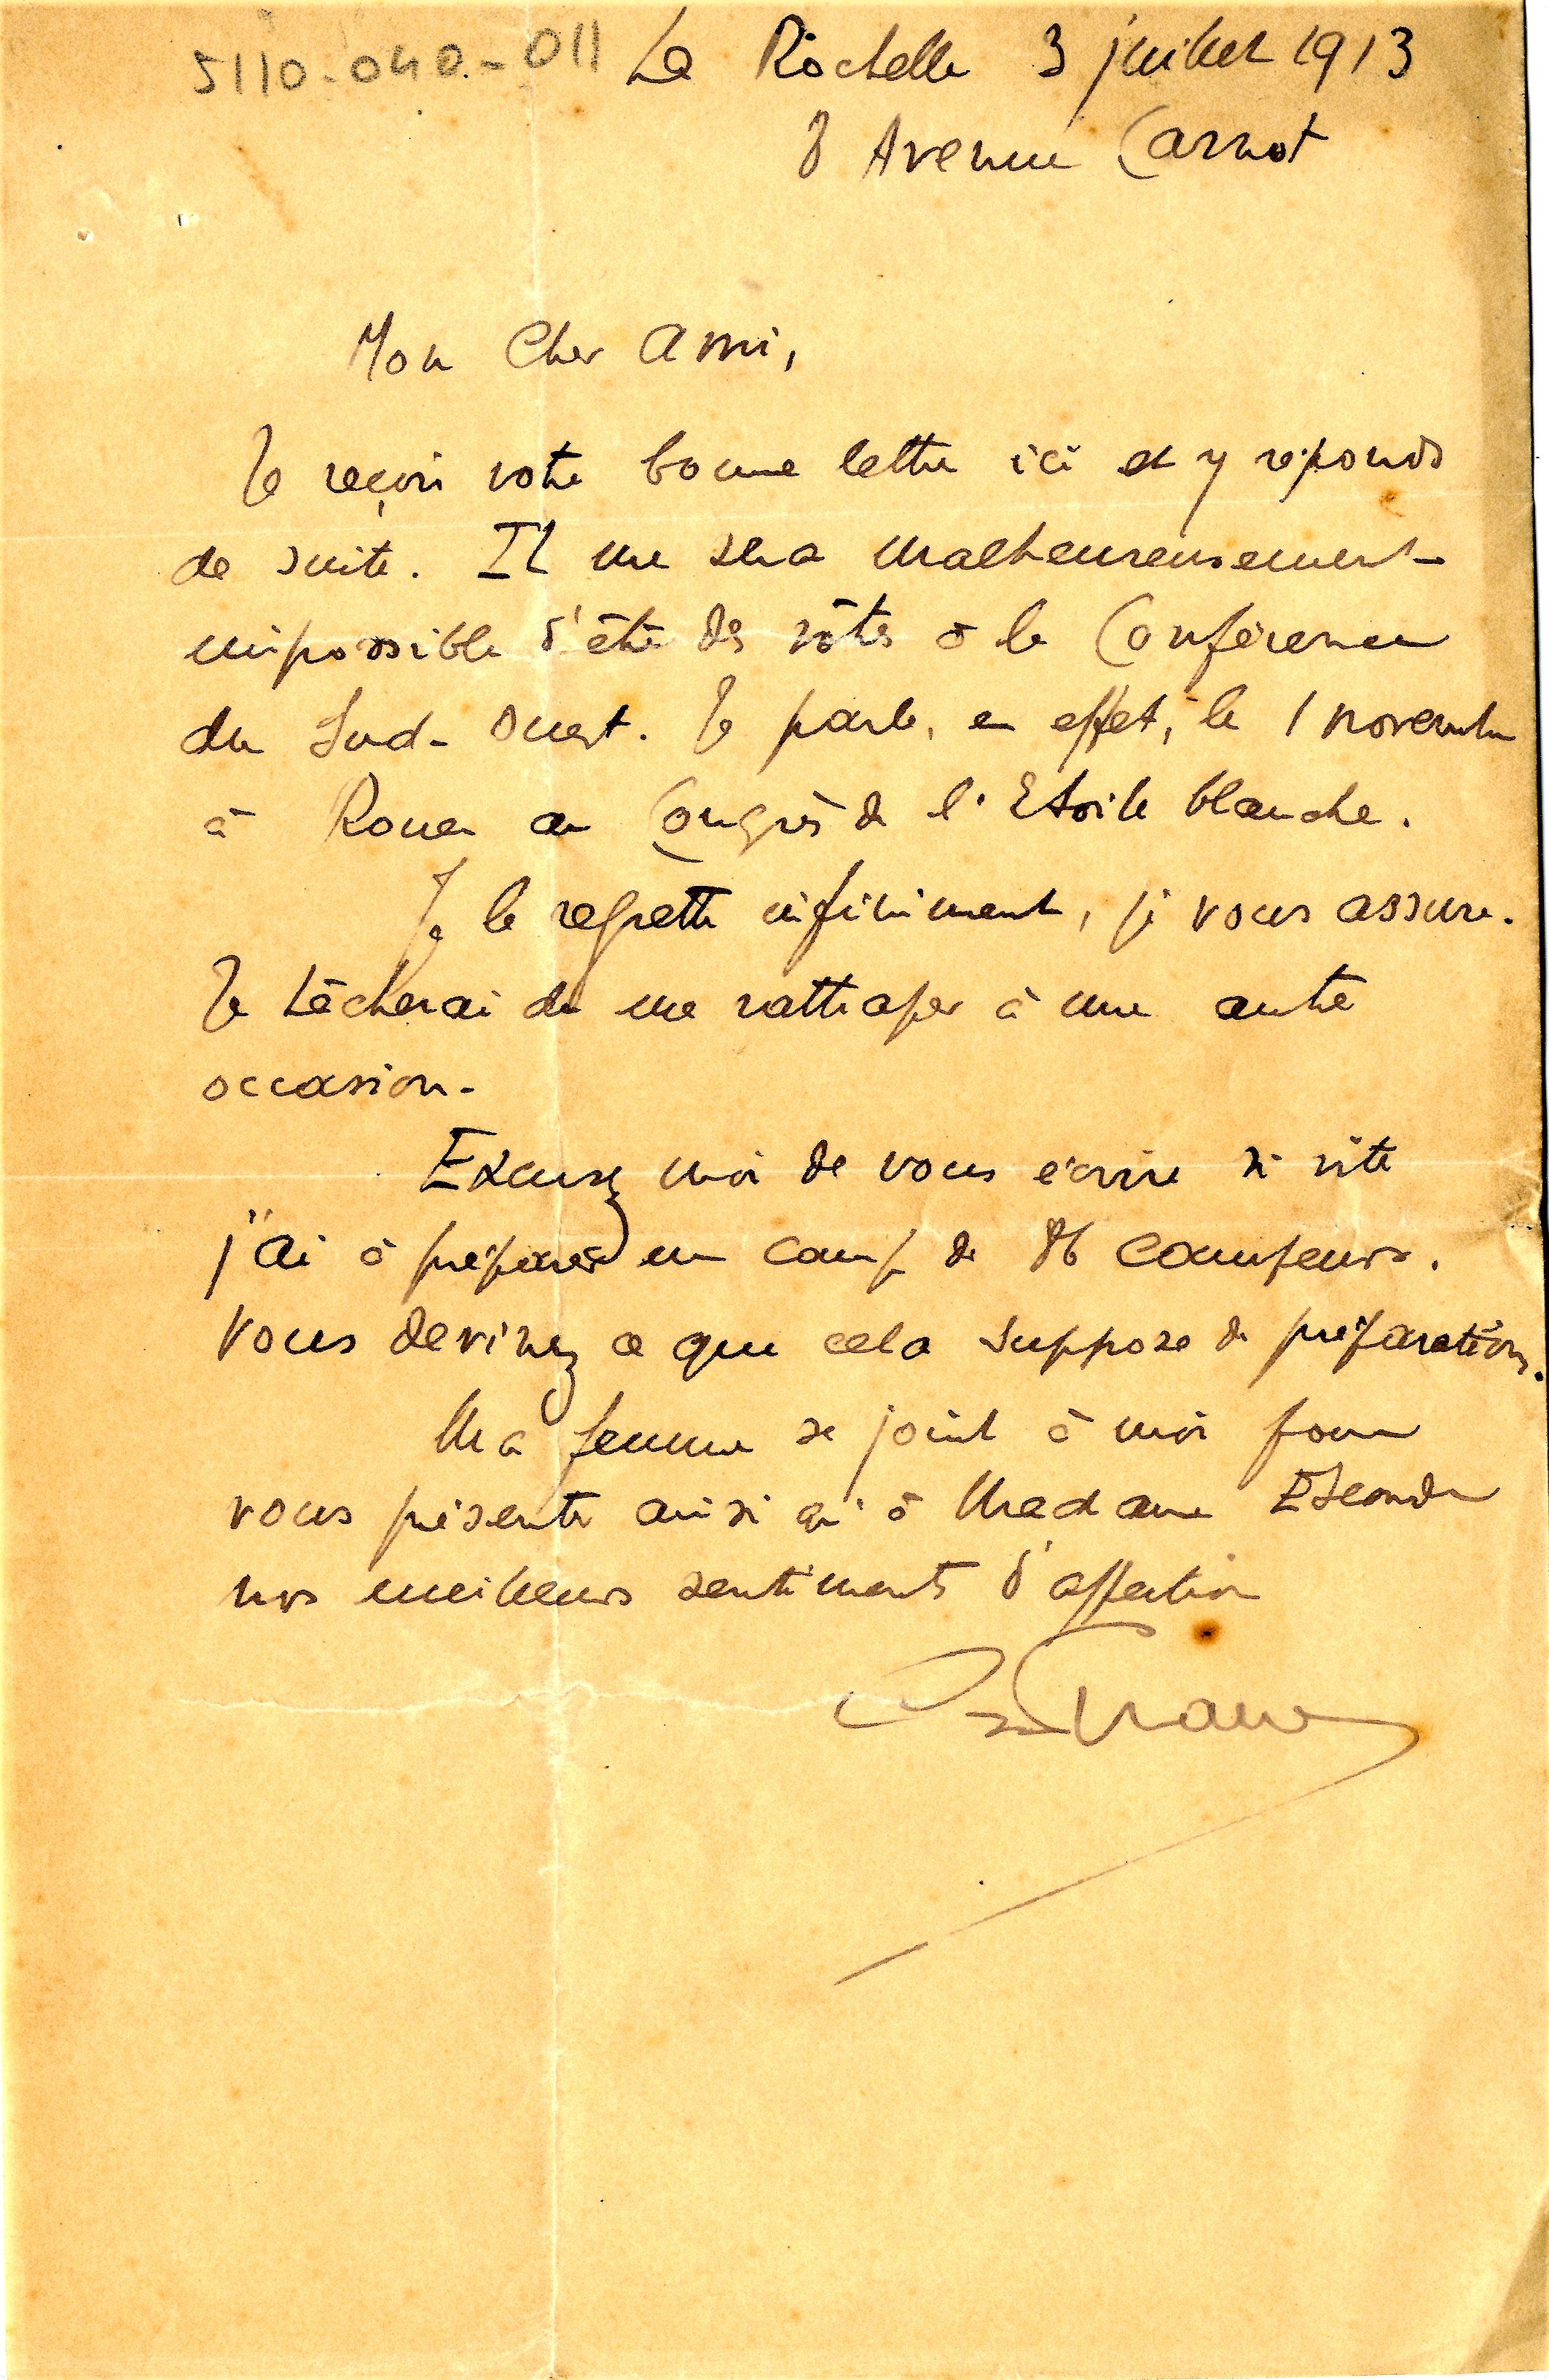 5110-040-011
La Rochelle 3 juillet 1913
8 Avenue Carnot
Mon Cher Ami,
Je reçois votre bonne lettre ici et y réponds
de suite. Il me sera malheureusement
impossible d'être des vôtres à la Conférence
du Sud-Ouest. Je parle, en effet, le 1 novembre
à Rouen au Congrès de l'Etoile blanche.
Je le regrette infiniment, je vous assure.
Je tâcherai de me rattraper à une autre
occasion.
Excusez moi de vous écrire si vite
j'ai à préparer un camp de 86 campeurs.
Vous devinez ce que cela suppose de préparations.
Ma femme se joint à moi pour
vous présenter ainsi qu'à Madame
nos meilleurs sentiments d'affection